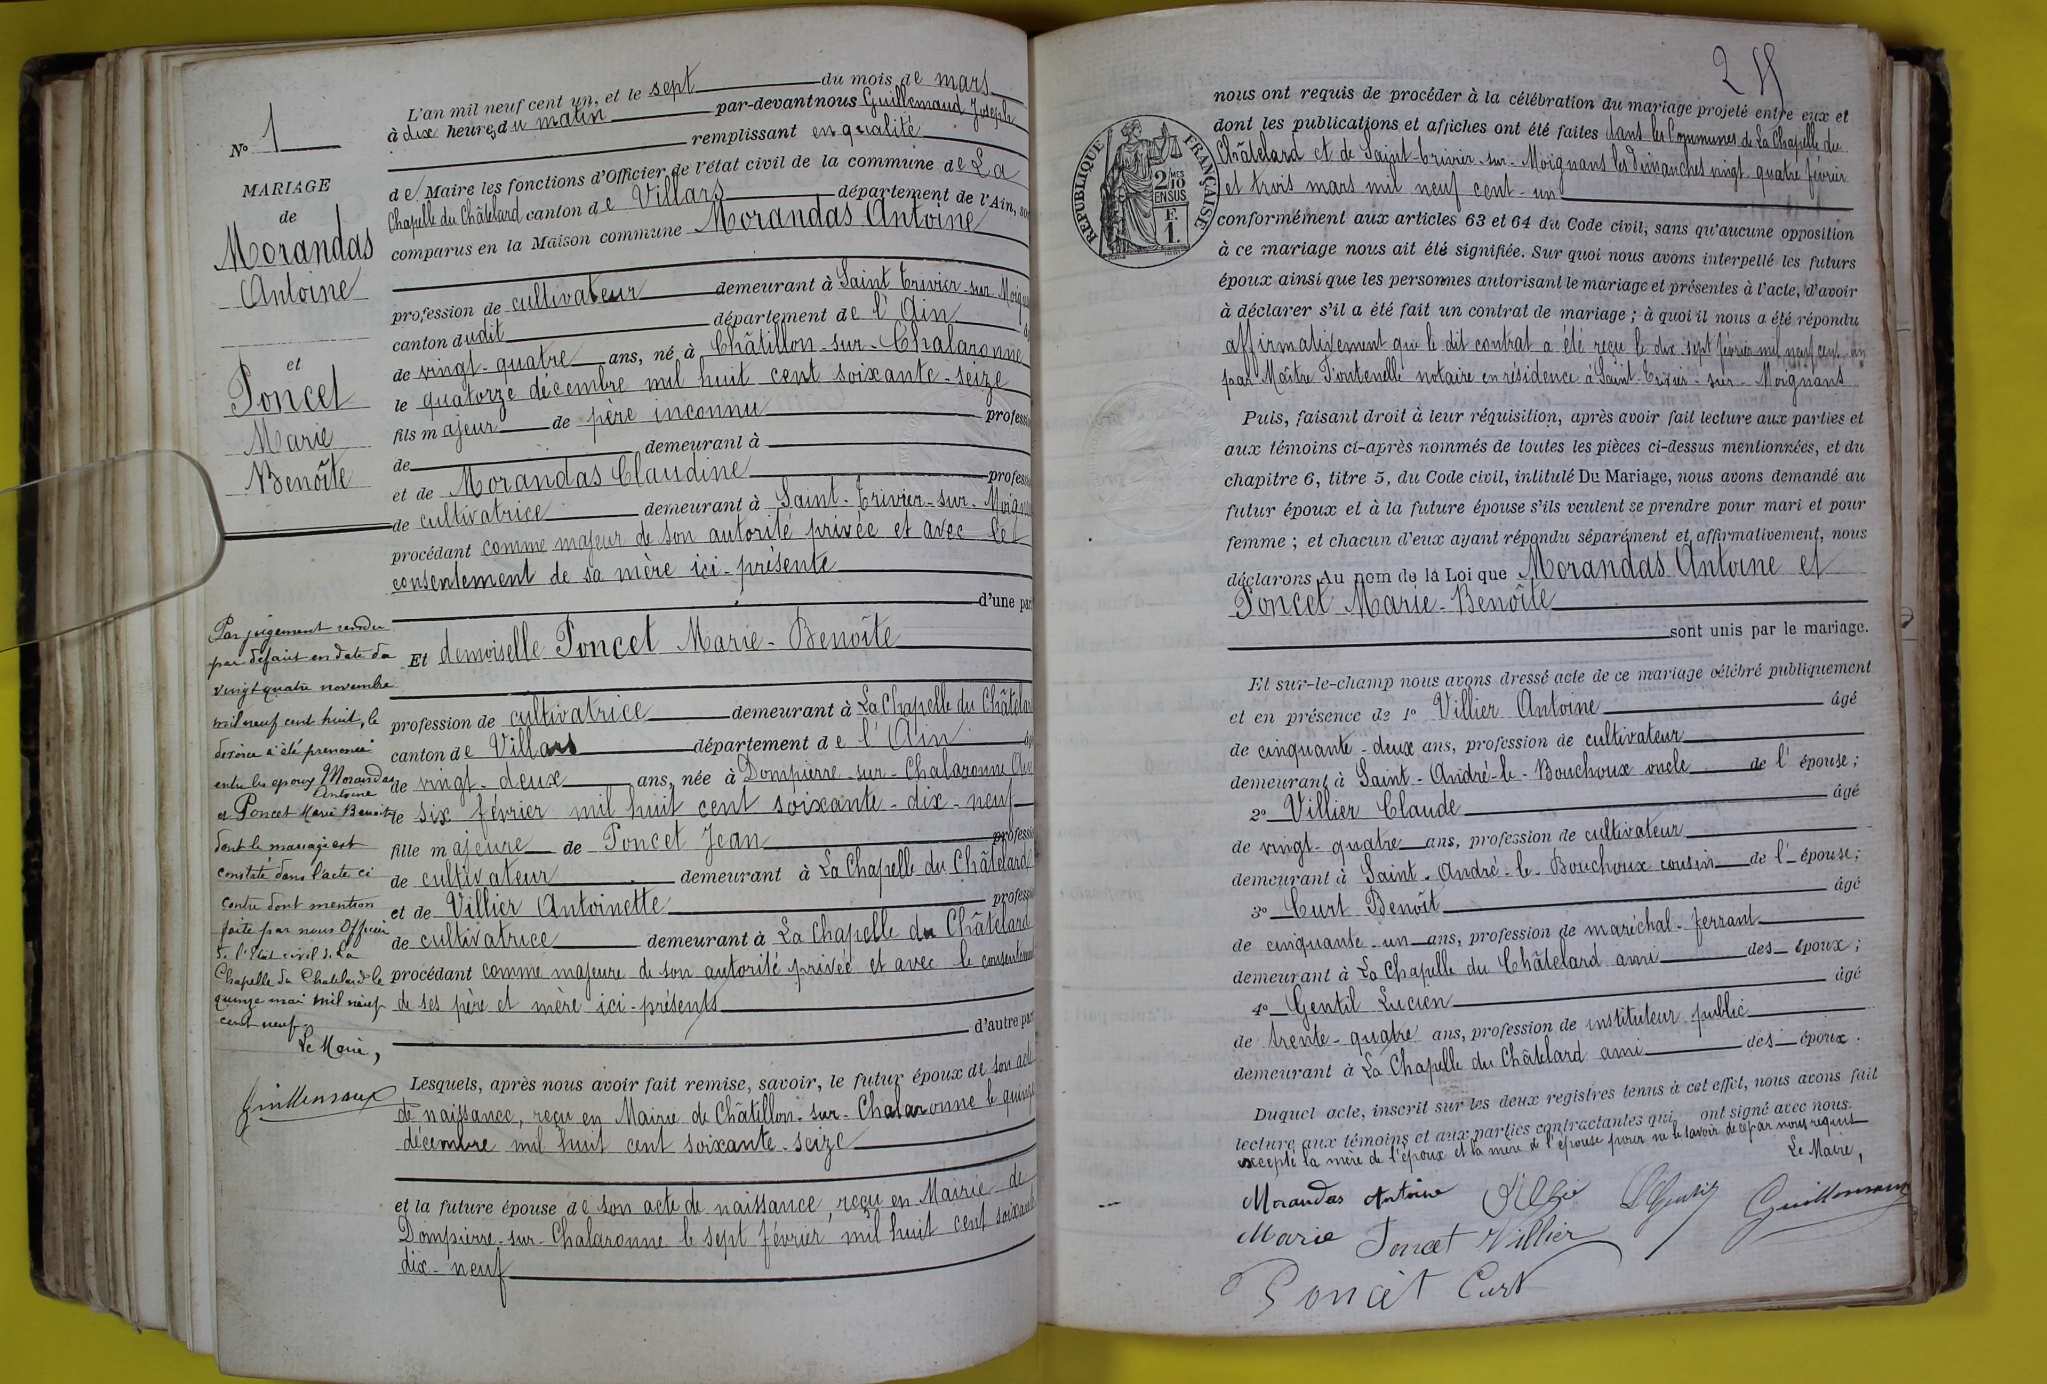 N° 1
MARIAGE
de
Morandas
Antoine
et
Poncet
Marie
Benoîte
Par jugement rendu
par défaut en date du
vingt quatre novembre
mil neuf cent huit, le
divorce a été prononcé
entre les époux Morandas
Antoine
et Poncet Marie Benoite
dont le mariage est
constaté dans l'acte ci
contre dont mention
faite par nous Officier
de l'Etat civil de La
Chapelle du Chatelard le
quinze mai mil neuf
cent neuf.
Le Maire,
L'an mil neuf cent un, et le sept du mois de mars
à dix heures du matin par-devant nous Guillemaud Joseph
remplissant en qualité
de Maire les fonctions d'Officier de l'état civil de la commune de La
Chapelle du Châtelard canton de Villars département de l'Ain, so
comparus en la Maison commune Morandas Antoine
profession de cultivateur demeurant à Saint Trivier-sur Moign
canton dudit département de l'Ain
de vingt-quatre ans, né à Châtillon-sur-Chalaronne
le quatorze décembre mil huit cent soixante-seize
fils majeur de père inconnu professi
de demeurant à
et de Morandas Claudine professi
de cultivatrice demeurant à Saint-Trivier-sur-Moignan
procédant comme majeur de son autorité privée et avec le
consentement de sa mère ici-présente
d'une par
Et demoiselle Poncet Marie-Benoîte
profession de cultivatrice demeurant à La Chapelle du Châtelar
canton de Villars département de l'Ain
de vingt-deux ans, née à Dompierre-sur-Chalaronne
le six février mil huit cent soixante-dix-neuf
fille majeure de Poncet Jean professi
de cultivateur demeurant à La Chapelle du Châtelard
et de Villier Antoinette professi
de cultivatrice demeurant à La Chapelle du Châtelard
procédant comme majeure de son autorité privée et avec le consentement
de ses père et mère ici-présents
d'autre par
Lesquels, après nous avoir fait remise, savoir, le futur époux de son acte
de naissance, reçu en Mairie de Châtillon-sur-Chalaronne le quinze
décembre mil huit cent soixante-seize
et la future épouse de son acte de naissance, reçu en Mairie de
Dompierre-sur-Chalaronne le sept février mil huit cent soixante
dix-neuf
RÉPUBLIQUE FRANÇAISE
2/10 EN SUS
nous ont requis de procéder à la célébration du mariage projeté entre eux et
dont les publications et affiches ont été faites dans les Communes de La Chapelle du
Châtelard et de Saint-Trivier-sur-Moignans les dimanches vingt-quatre février
et trois mars mil neuf cent-un
conformément aux articles 63 et 64 du Code civil, sans qu'aucune opposition
à ce mariage nous ait été signifiée. Sur quoi nous avons interpellé les futurs
époux ainsi que les personnes autorisant le mariage et présentes à l'acte, d'avoir
à déclarer s'il a été fait un contrat de mariage ; à quoi il nous a été répondu
affirmativement que le dit contrat a été reçu le dix-sept février mil neuf cent un
par Maître Fontenelle notaire en résidence à Saint-Trivier-sur-Moignans
Puis, faisant droit à leur réquisition, après avoir fait lecture aux parties et
aux témoins ci-après nommés de toutes les pièces ci-dessus mentionnées, et du
chapitre 6, titre 5, du Code civil, intitulé Du Mariage, nous avons demandé au
futur époux et à la future épouse s'ils veulent se prendre pour mari et pour
femme ; et chacun d'eux ayant répondu séparément et affirmativement, nous
déclarons Au nom de la Loi que Morandas Antoine et
Poncet Marie-Benoîte
sont unis par le mariage.
Et sur-le-champ nous avons dressé acte de ce mariage célébré publiquement
et en présence de 1° Villier Antoine âgé
de cinquante-deux ans, profession de cultivateur
demeurant à Saint-André-le-Bouchoux oncle de l'épouse ;
2° Villier Claude âgé
de vingt-quatre ans, profession de cultivateur
demeurant à Saint-André-le-Bouchoux cousin de l'épouse ;
3° Curt Benoît âgé
de cinquante-un ans, profession de maréchal-ferrant
demeurant à La Chapelle du Châtelard ami des époux ;
4° Gentil Lucien âgé
de trente-quatre ans, profession de instituteur public
demeurant à La Chapelle du Châtelard ami des époux.
Duquel acte, inscrit sur les deux registres tenus à cet effet, nous avons fait
lecture aux témoins et aux parties contractantes qui ont signé avec nous
excepté la mère de l'époux et la mère de l'épouse pour ne le savoir de ce par nous requis
Le Maire,
Morandas Antoine
Marie Poncet Villier
Poncet Curt